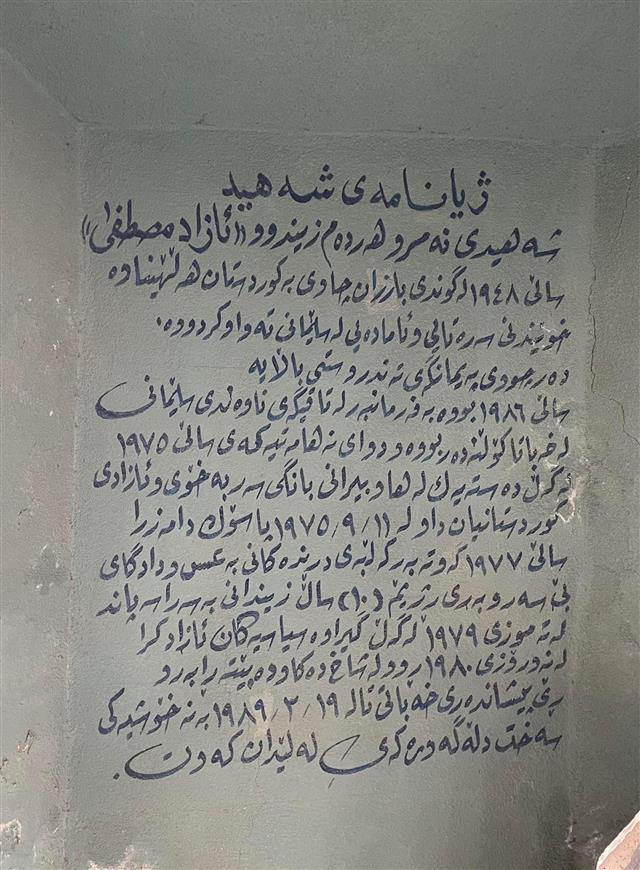 ژیانامەی شەهید
شەهیدی نەمرو هەردەم زیندوو «ئازاد مصطفی»
ساڵی ١٩٤٨ لەگوندی بارزان چاوی بەکوردستان هەڵهێناوە
خوێندنی سەرەتایی وئامادەیی لەسلێمانی تەواوکردووە.
دەرچووی پەیمانگەی تەندروستی باڵایە
ساڵی ١٩٨٦ بووە بەفەرمانبەر لەتاقیگەی ناوەندی سلێمانی
لەخەباتا کۆڵنەدەربووە و دوای نەهامەتیەکەی ساڵی ١٩٧٥
لەگەڵ دەستەیەک لەهاوبیرانی بانگی سەربەخۆی وئازادی
کوردستانیان داو لە ١١/٩/١٩٧٥ پاسۆک دامەزرا
ساڵی ١٩٧٧ کەوتە بەرگەلبەی درندەکانی بەعس ودادگای
بێ سەروبەری رژیم (١٠) ساڵ زیندانی بەسەراسەپاند
لەتەموزی ١٩٧٩ لەگەڵ گیراوە سیاسیەکان ئازادکرا
لەنەورۆزی ١٩٨٠ روو لەشاخ دەکاو وەپێتە رابەرو
رێ پیشاندەری خەباتی تالە ١٩/٢/١٩٨٩ بەنەخۆشیەکی
سەخت دڵەگەورەکەی لەلێدان کەوت.